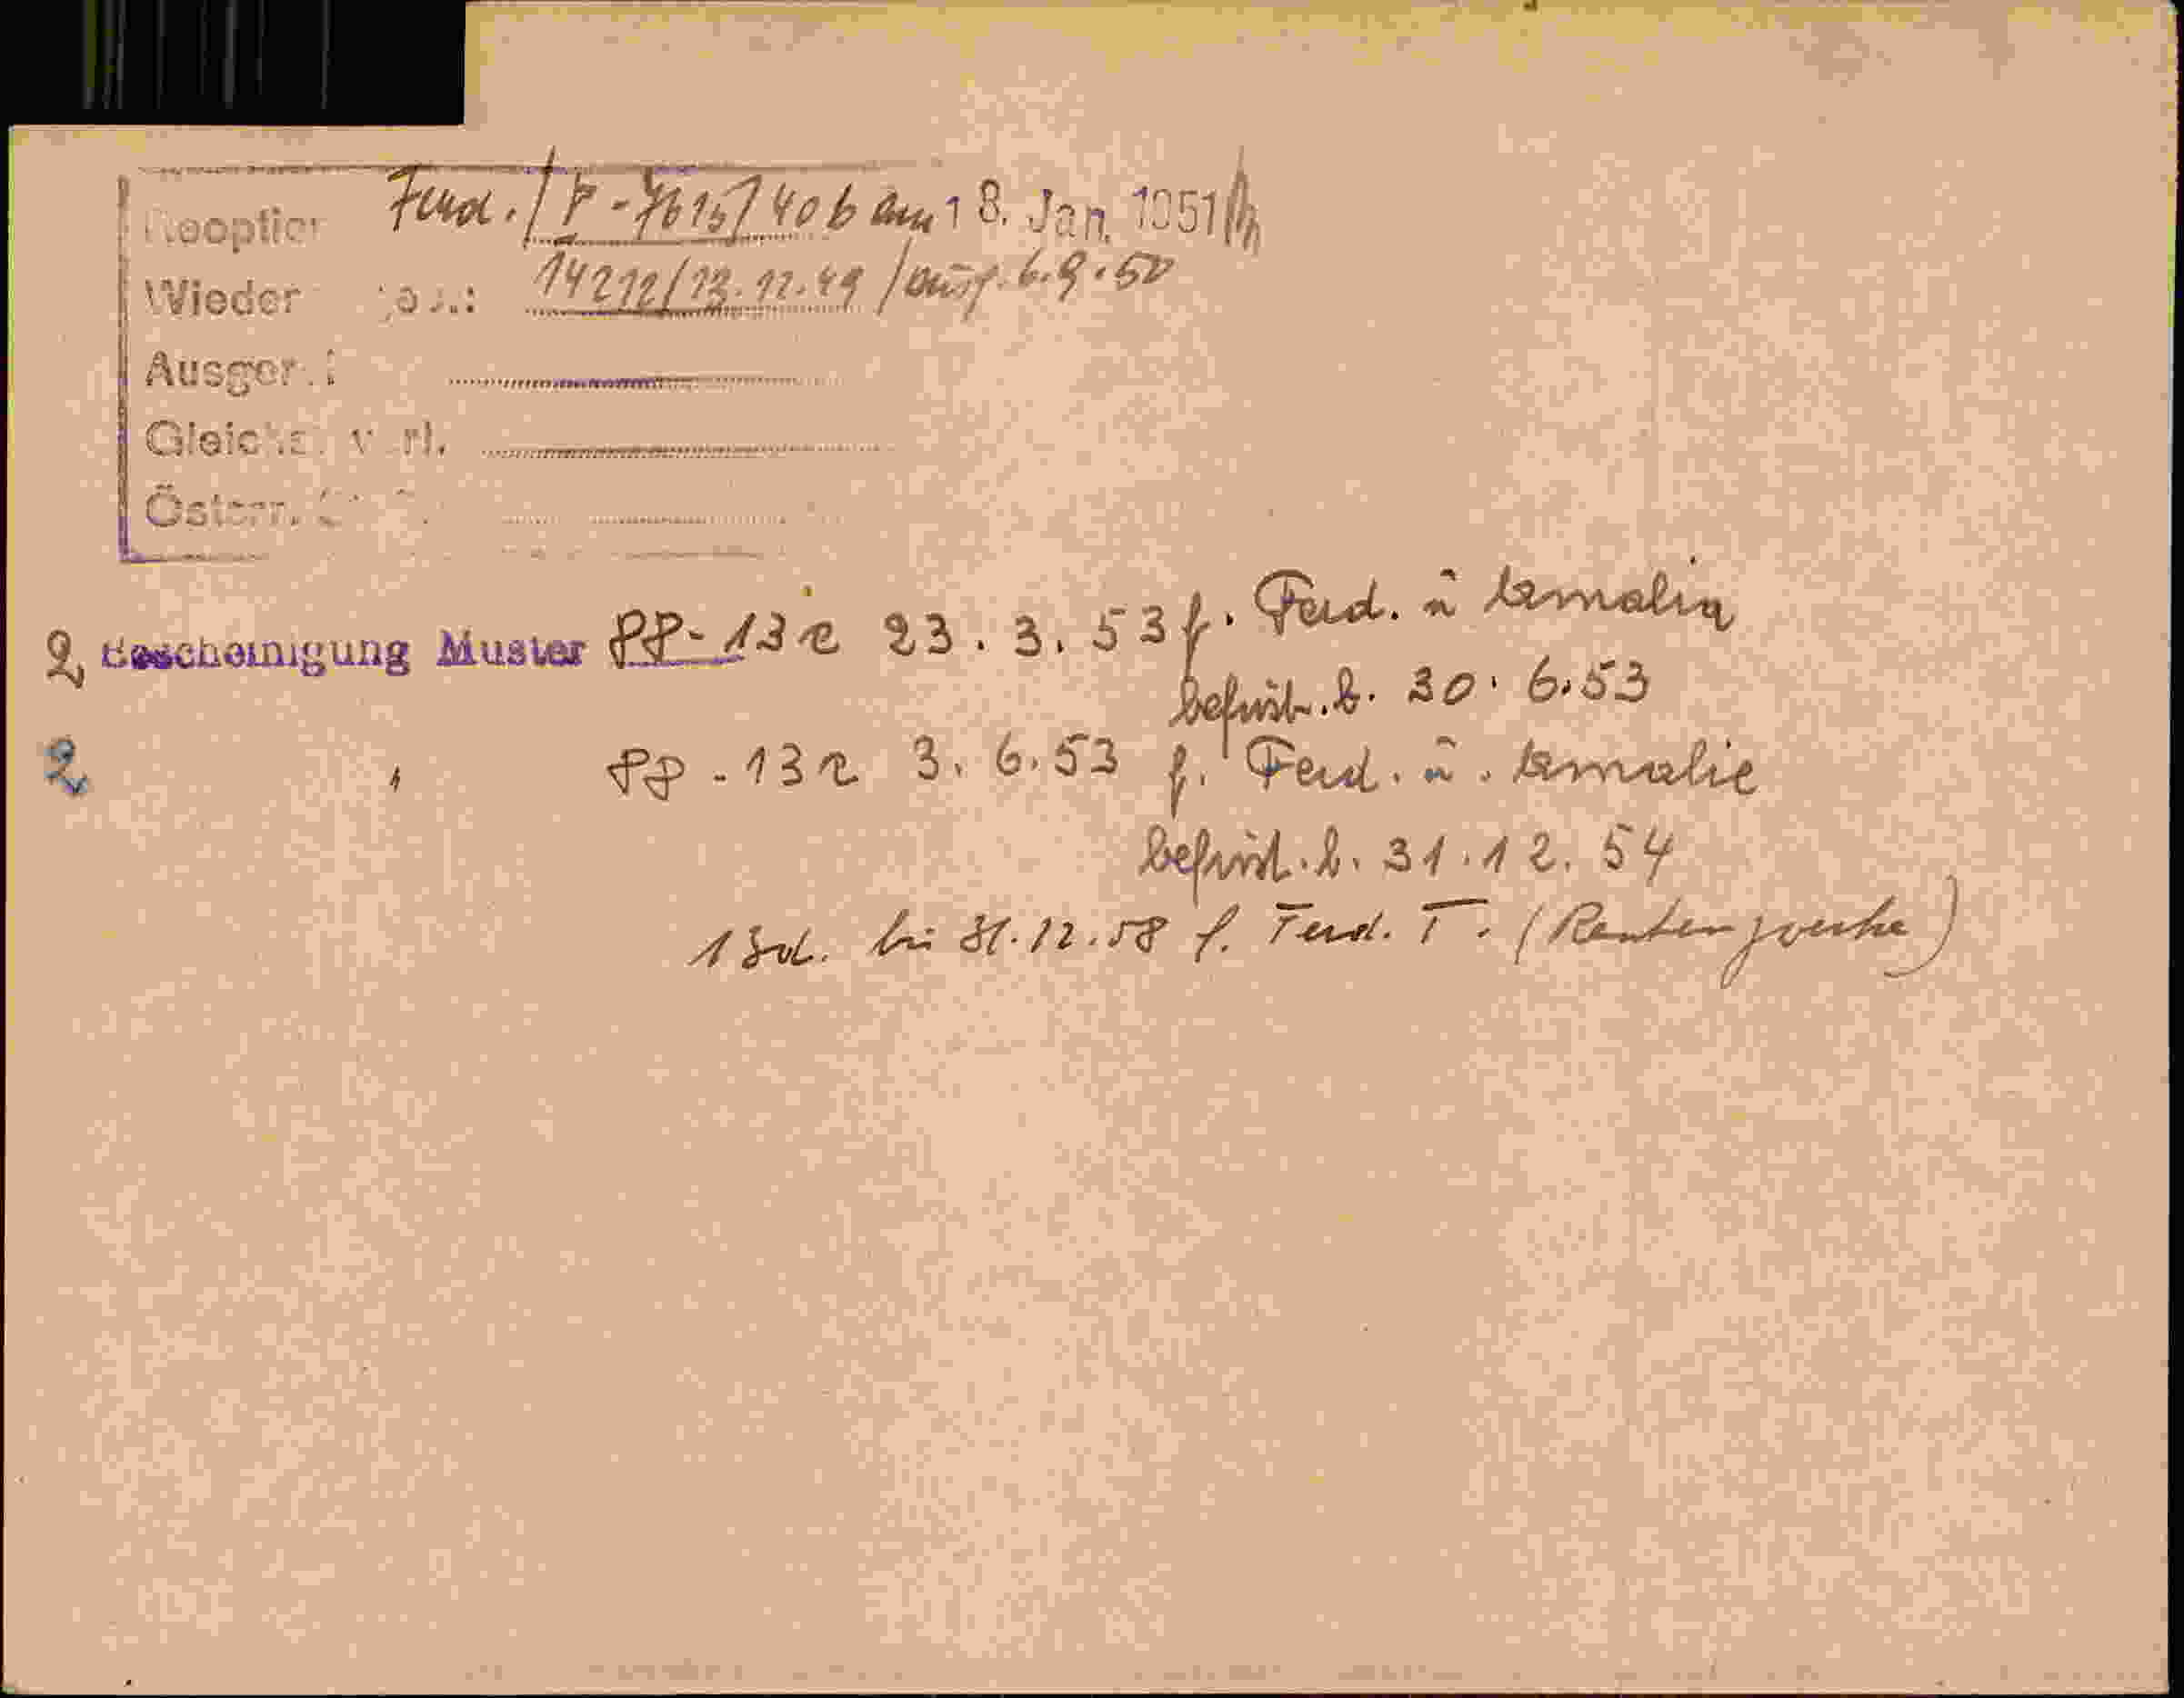 Reoptier Ferd. / P - 7615/40 b am 18. Jan. 1951
Wieder 14212/13.12.49 / ausg. 6.9.50
Ausger.
Gleich
Österr.
2 Bescheinigung Muster PP - 13 c 23. 3. 53 f. Ferd. u Amalia
befrist. b. 30. 6. 53
2 " PP - 13 c 3. 6. 53 f. Ferd. u. Amalie
befrist. b. 31. 12. 54
13d. bis 31.12.58 f. Ferd. T. (Rentenzwecke)